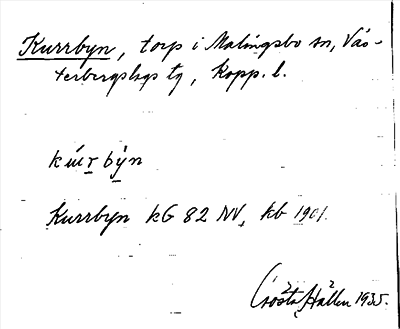 Kurrbyn, torp i Malingsbo sn, Väs-
terbergslags tg, Kopp. l.
kúr̲býn
Kurrbyn kG 82 NV, kb 1901.
Gösta Hallen 1935.